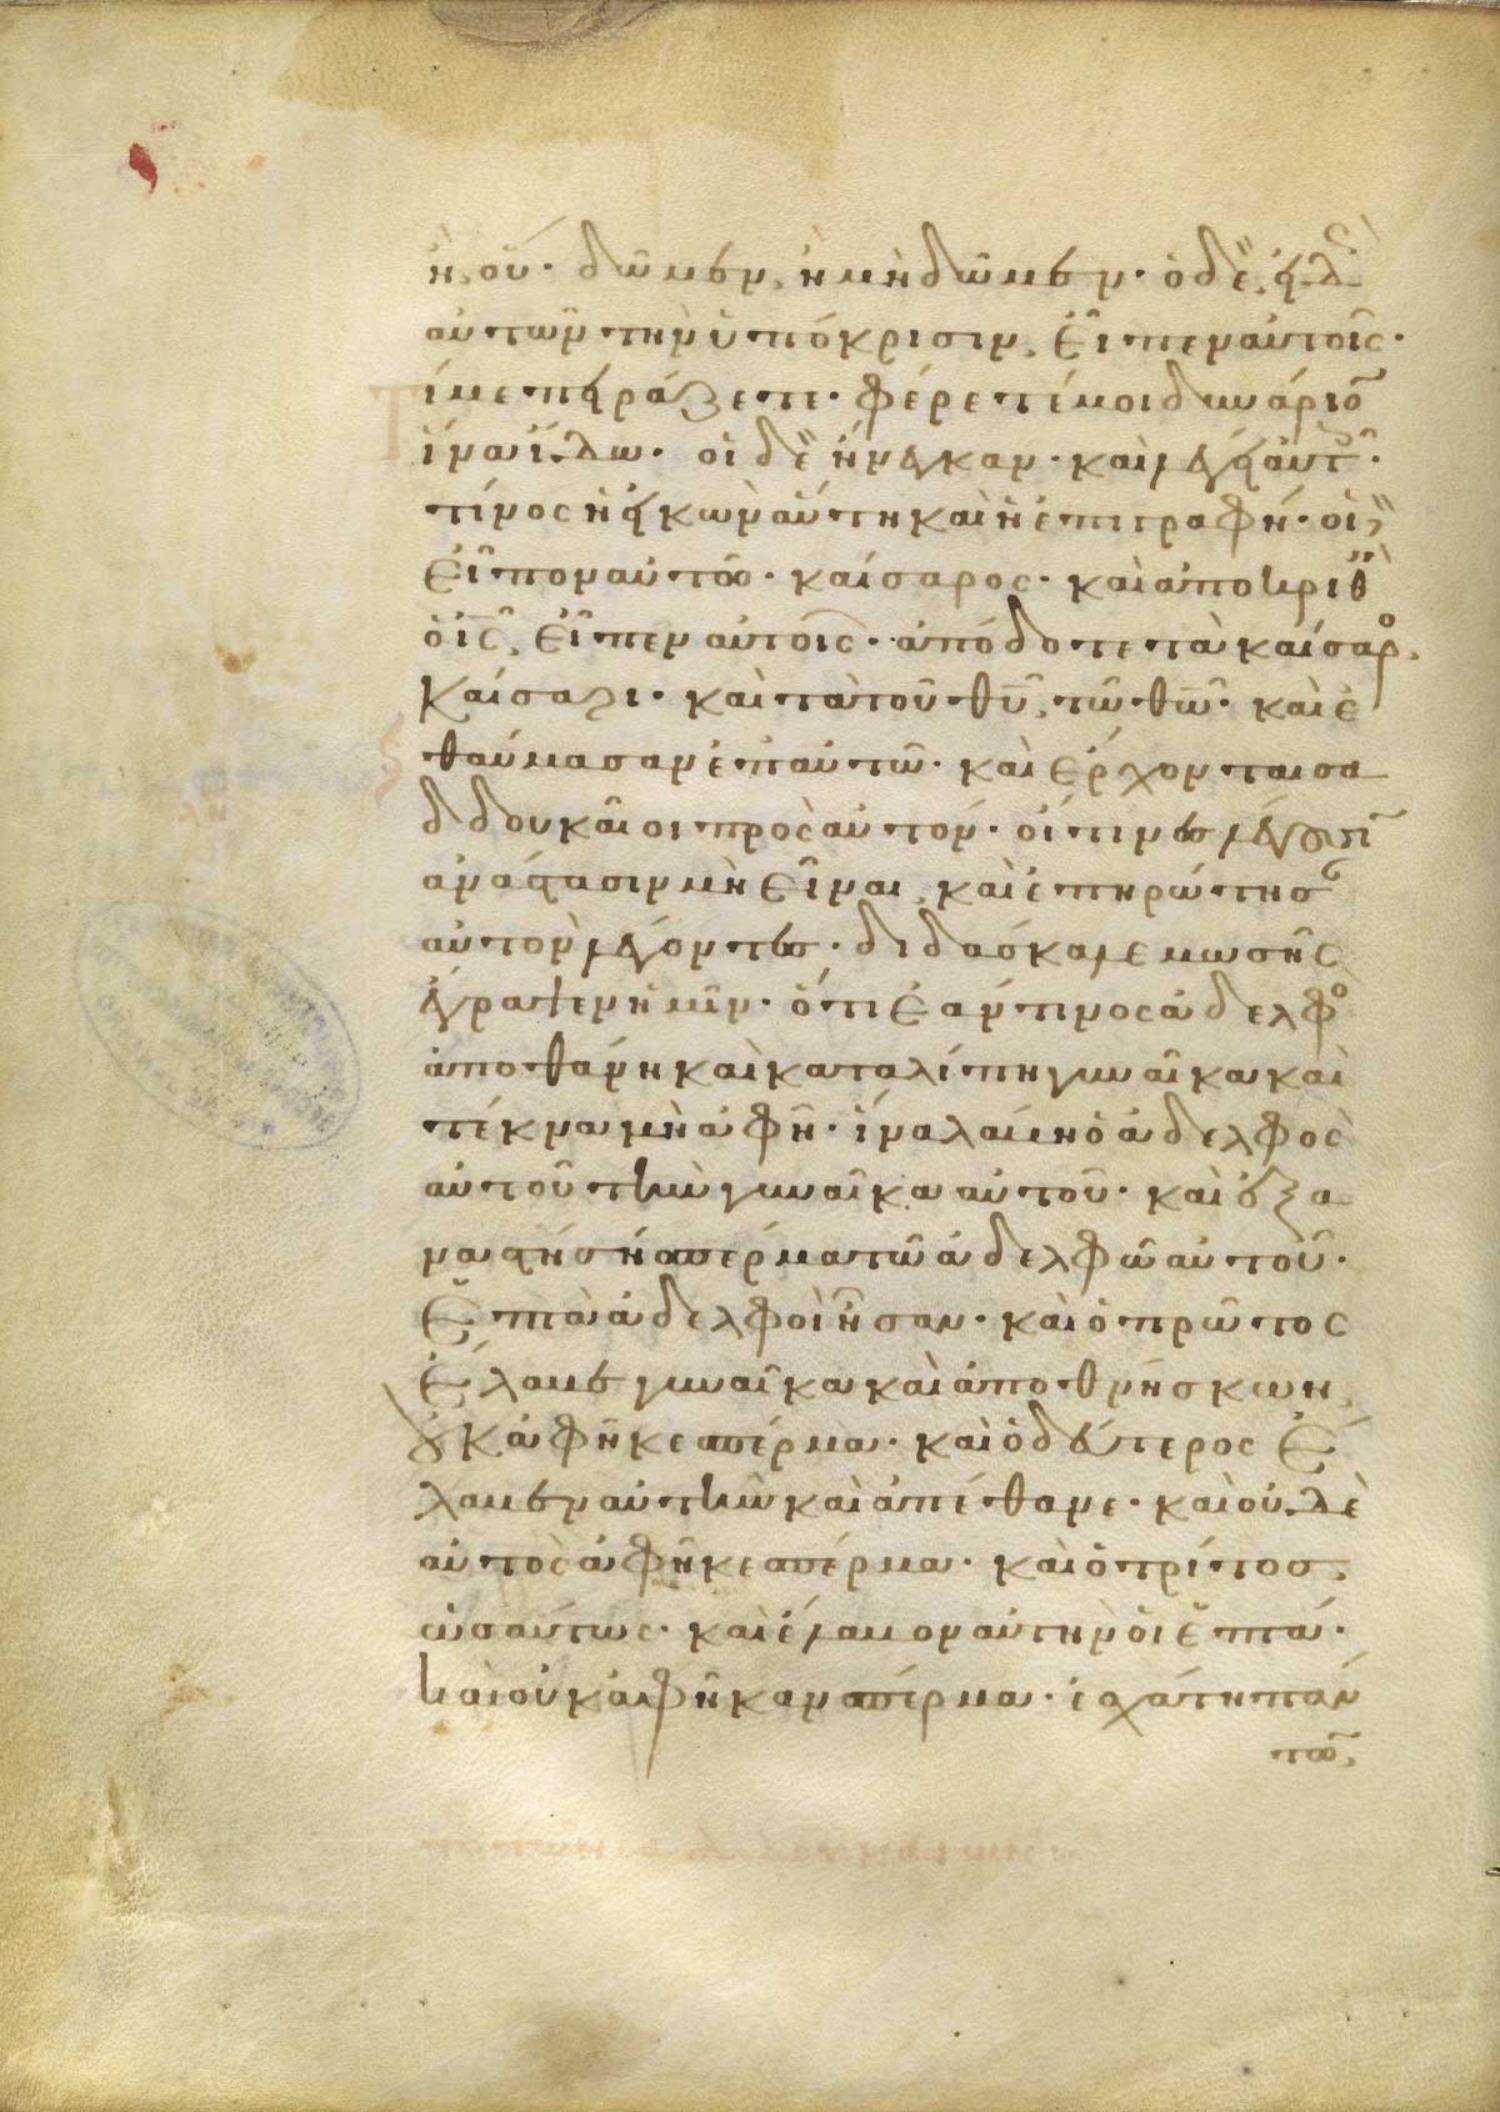 ἢ οὔ· δῶμεν, ἢ μὴ δῶμεν· ὁ δὲ εἰδ
αυτῶν τὴν ὑπόκρισιν, εἶπεν αὐτοῖς·
Τί με πειράζετε· φέρετέ μοι δηνάριο
ἵνα ἴδω· οἱ δὲ ἤνεγκαν· καὶ λέγει αὐτ·
τίνος ἡ εἰκὼν αὕτη καὶ ἡ ἐπιγραφή· οἱ δὲ
εἶπον αὐτῶ· καίσαρος· καὶ ἀποκριθ
ὁ ις, εἶπεν αὐτοῖς· ἀπόδοτε τὰ καίσαρο,
καίσαρι· καὶ τὰ τοῦ θυ, τῶ θω· καὶ ἐ
θαύμασαν ἐπ αὐτῶ· καὶ ἔρχονται σα
δδουκαῖοι πρὸς αὐτόν· οἵτινες λέγουσι
ἀνάστασιν μὴ εἶναι, καὶ ἐπηρώτησ
αὐτὸν λέγοντες· διδάσκαλε μωσῆς
ἔγραψεν ἡμῖν· ὅτι ἐάν τινος ἀδελφο
ἀποθάνη καὶ καταλίπη γυναῖκα καὶ
τέκνα μὴ ἀφῆ· ἵνα λάβη ὁ ἀδελφὸς
αὐτοῦ τὴν γυναῖκα αὐτοῦ· καὶ ἐξα
ναστήση σπέρμα τῶ ἀδελφῶ αὐτοῦ·
Ἑπτὰ ἀδελφοὶ ἦσαν· καὶ ὁ πρῶτος
ἔλαβε γυναῖκα καὶ ἀποθνήσκων,
οὐκ ἀφῆκε σπέρμα· καὶ ὁ δεύτερος ἔ
λαβεν αὐτὴν καὶ ἀπέθανε· καὶ οὐδὲ
αὐτὸς ἀφῆκε σπέρμα· καὶ ὁ τρίτος,
ὡσαύτως· καὶ ἔλαβον αὐτὴν οἱ ἑπτά·
καὶ οὐκ ἀφῆκαν σπέρμα· ἐσχάτη πάν
των,